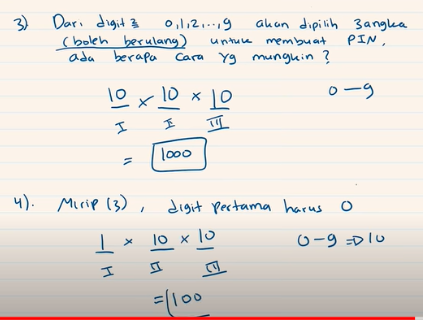 3) Dari digit2 0,1,2,...,9 akan dipilih 3 angka
(boleh berulang) untuk membuat PIN.
ada berapa cara yg mungkin?
10 × 10 × 10
0 — 9
I II III
= 1000
4). Mirip (3), digit pertama harus 0
1 × 10 × 10
0-9 => 10
I II III
= 100